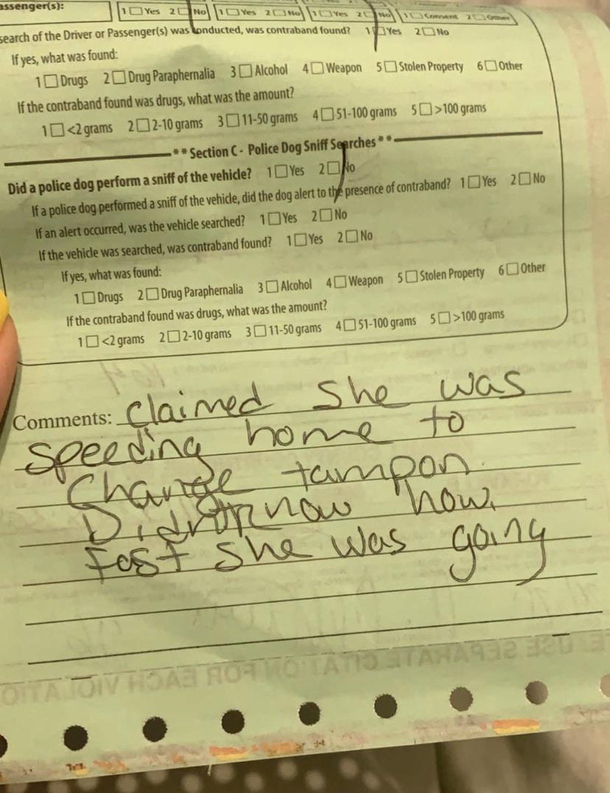 assenger(s): 1☐ Yes 2☐ No 1☐ Yes 2☐ No 1☐ Yes 2☐ No 1☐ Consent 2☐ Other
search of the Driver or Passenger(s) was conducted, was contraband found? 1☐ Yes 2☐ No
If yes, what was found:
1☐ Drugs 2☐ Drug Paraphernalia 3☐ Alcohol 4☐ Weapon 5☐ Stolen Property 6☐ Other
If the contraband found was drugs, what was the amount?
1☐ <2 grams 2☐ 2-10 grams 3☐ 11-50 grams 4☐ 51-100 grams 5☐ >100 grams
** Section C - Police Dog Sniff Searches **
Did a police dog perform a sniff of the vehicle? 1☐ Yes 2☐ No
If a police dog performed a sniff of the vehicle, did the dog alert to the presence of contraband? 1☐ Yes 2☐ No
If an alert occurred, was the vehicle searched? 1☐ Yes 2☐ No
If the vehicle was searched, was contraband found? 1☐ Yes 2☐ No
If yes, what was found:
1☐ Drugs 2☐ Drug Paraphernalia 3☐ Alcohol 4☐ Weapon 5☐ Stolen Property 6☐ Other
If the contraband found was drugs, what was the amount?
1☐ <2 grams 2☐ 2-10 grams 3☐ 11-50 grams 4☐ 51-100 grams 5☐ >100 grams
Comments: Claimed she was
speeding home to
Change tampon.
Didn't know how
fast she was going
USE SEPARATE CITATION FOR EACH VIOLATIO